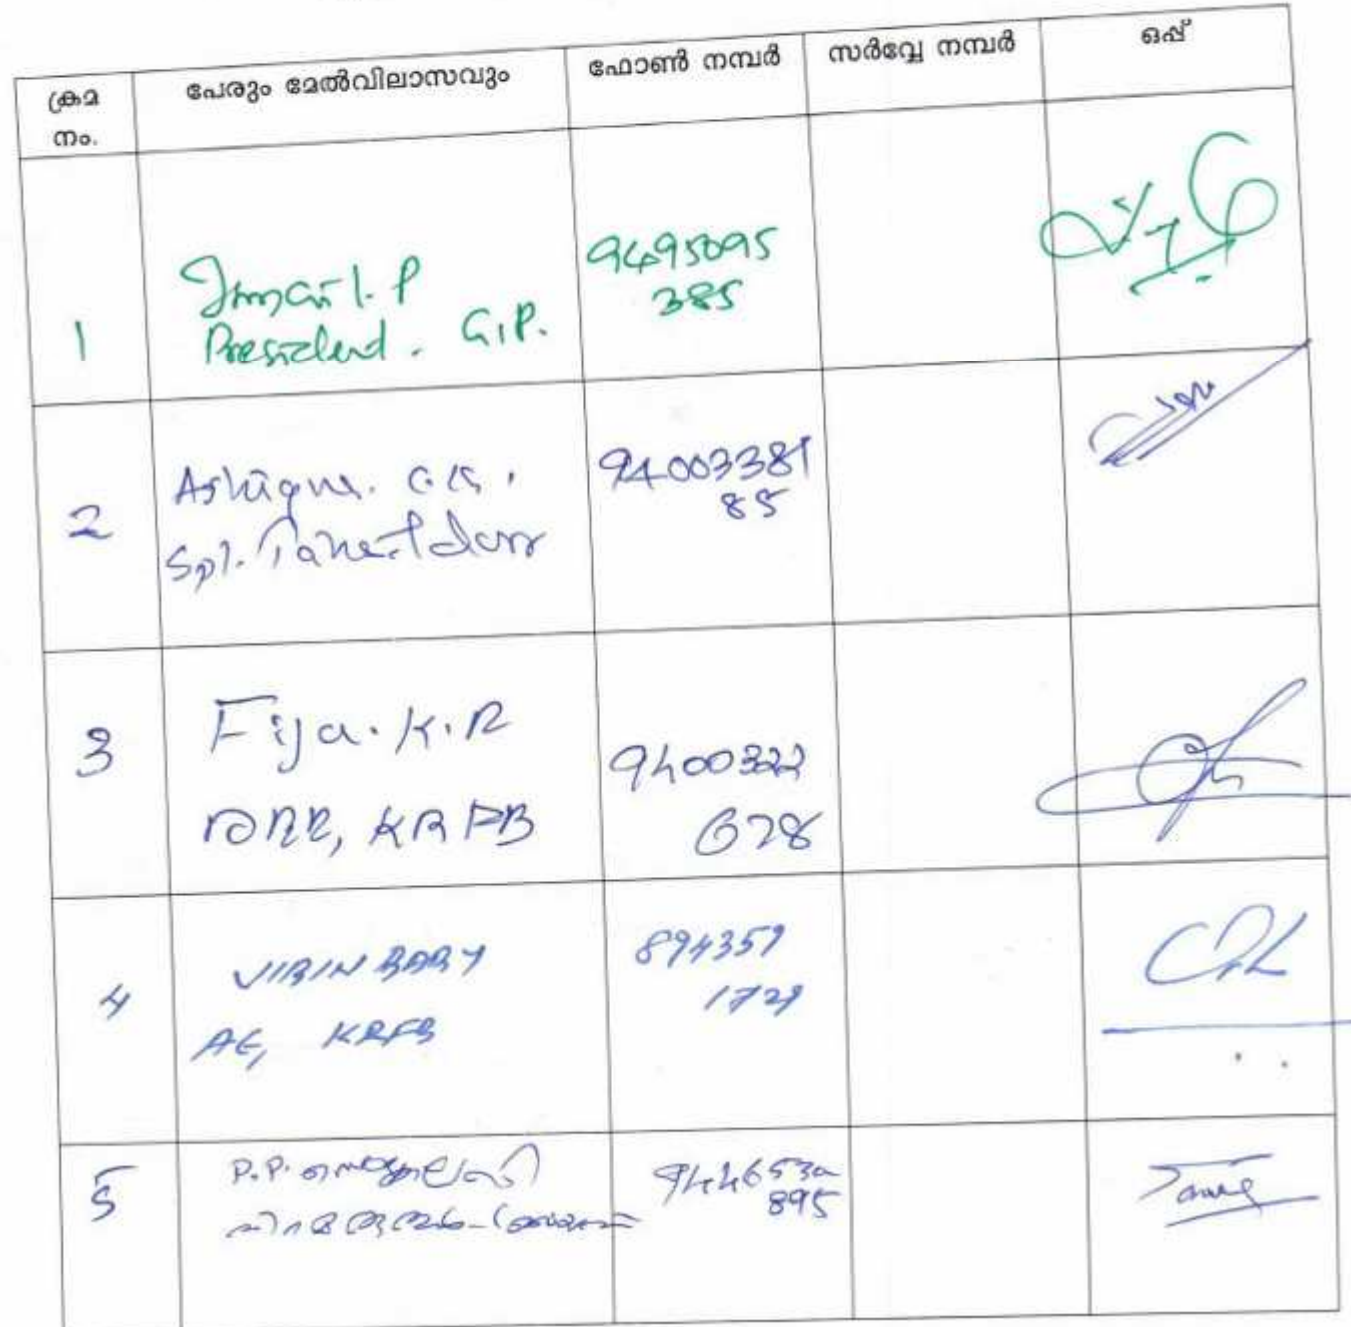 ക്രമ നം. പേരും മേൽവിലാസവും ഫോൺ നമ്പർ സർവ്വേ നമ്പർ ഒപ്പ്
1
Ismail. P
President. G.P.
9495095
385
2
Ashique. C.K.
Spl. Tahsildar
94003381
85
3
Fija. K.R
KRFB
9400322
678
4
VIBIN BABY
AE, KRFB
894359
1729
5
P.P.
895